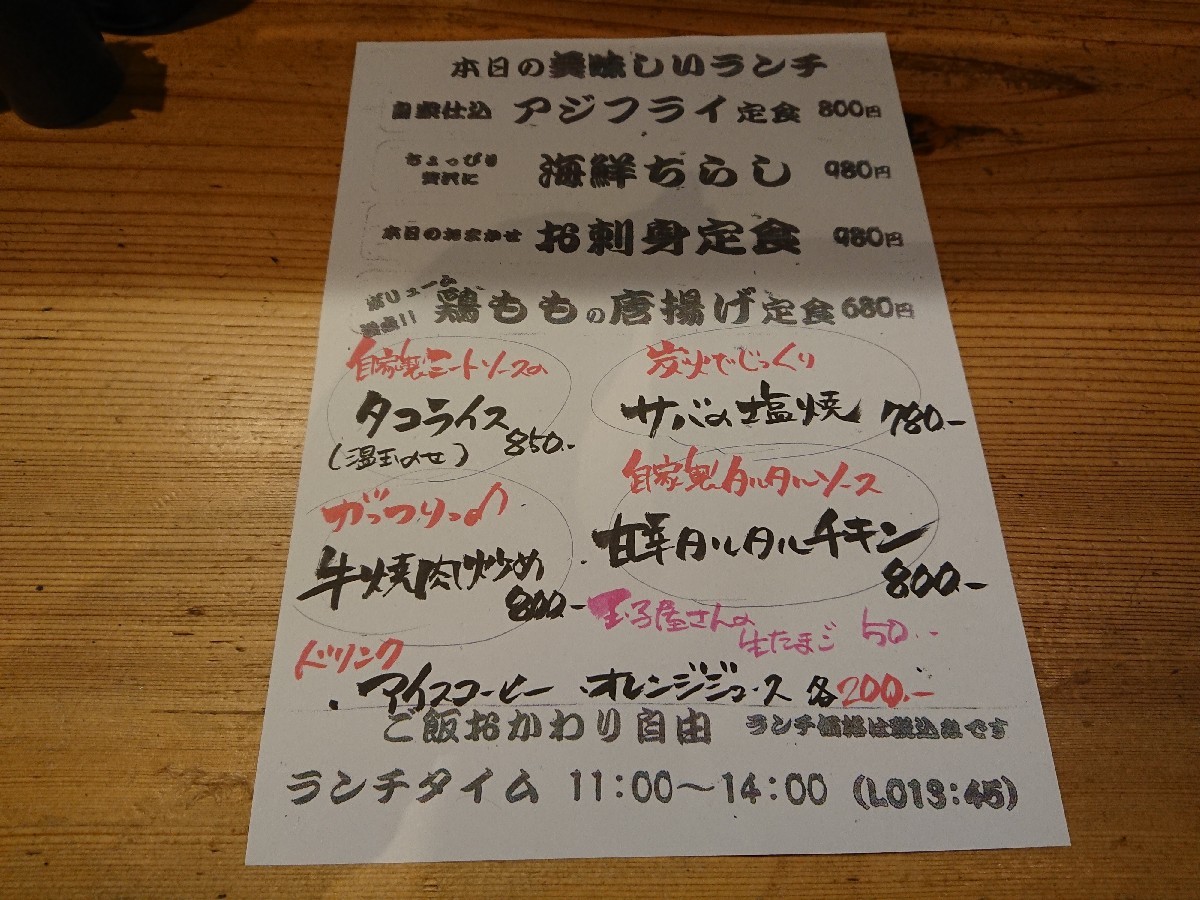 本日の美味しいランチ
自家仕込 アジフライ定食 800円
ちょっぴり
贅沢に 海鮮ちらし 980円
本日のおまかせ お刺身定食 980円
ボリューム
満点!! 鶏ももの唐揚げ定食 680円
自家製ミートソースの
タコライス
(温玉のせ) 850.-
炭火でじっくり
サバの塩焼 780.-
がっつりっ♪
牛焼肉炒め
800.-
自家製タルタルソース
・甘辛タルタルチキン
800.-
玉子屋さんの
生たまご 50.-
ドリンク
・アイスコーヒー ・オレンジジュース 各200.-
ご飯おかわり自由 ランチ価格は税込みです
ランチタイム 11:00〜14:00 (LO13:45)